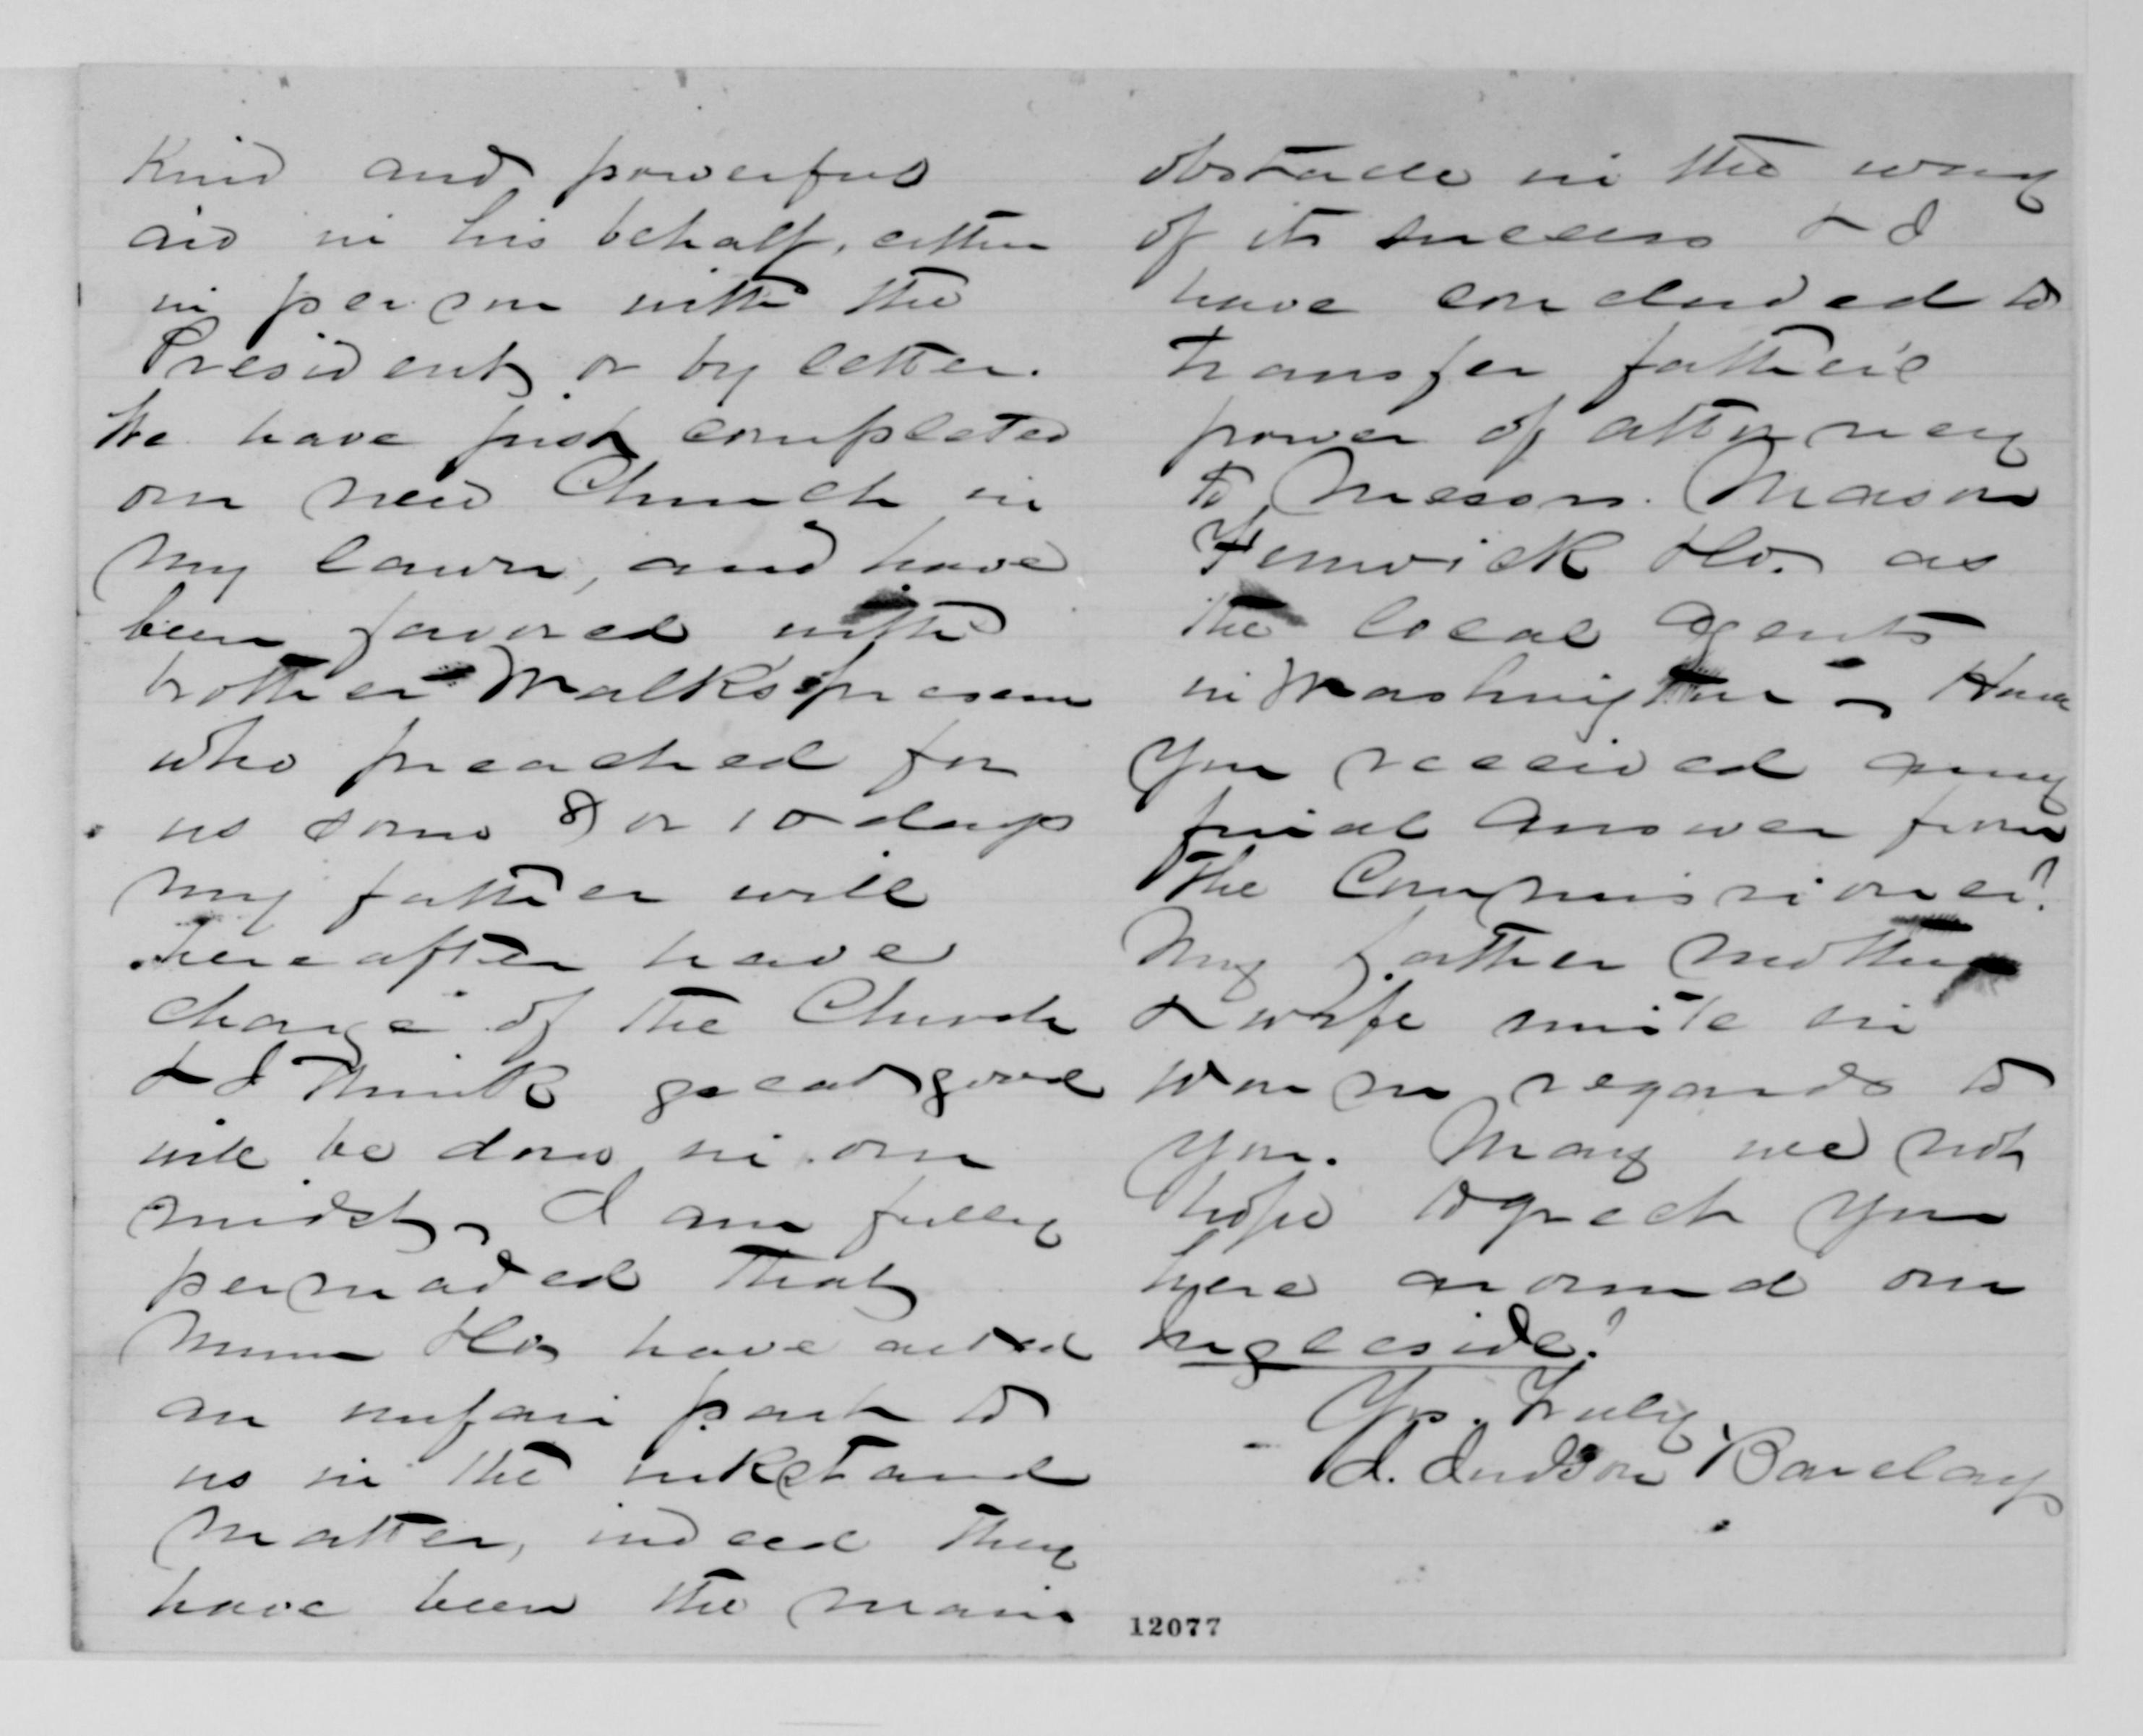 Kind and powerful
aid in his behalf, either
in person with the
President, or by letter.
We have just completed
our new Church in
my lawn, and have
been favored with
brother Walk's presence
who preached for
us some 8 or 10 days
my father will
hereafter have
charge of the Church
& I think great good
will be done in our
midst, I am fully
persuaded that
Munn & Co have acted
an unfair part to
us in the inkstand
matter, indeed they
have been the main
obstacle in the way
of its success & I
have concluded to
transfer father's
power of attorney
to Messrs. Mason
Fenwick & Co. as
the local agents
in Washington - Have
you received any
final answer from
the Commissioner?
My father mother
& wife unite in
warm regards to
you. May we not
hope to greet you
here around our
Ingleside!
Yrs. Truly
J. Judson Barclay
12077